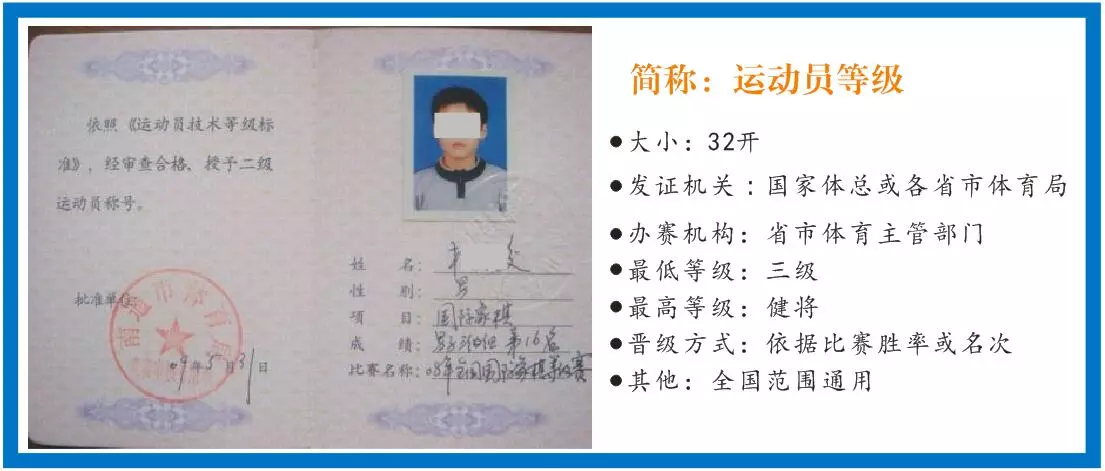 依照《运动员技术等级标
准》，经审查合格、授予二级
运动员称号。
批准单位:
南通市体育局
09年5月31日
姓 名:
性 别: 男
项 目: 国际象棋
成 绩: 第16名
比赛名称: 08年全国国际象棋等级赛
简称：运动员等级
●大小：32开
●发证机关：国家体总或各省市体育局
●办赛机构：省市体育主管部门
●最低等级：三级
●最高等级：健将
●晋级方式：依据比赛胜率或名次
●其他：全国范围通用